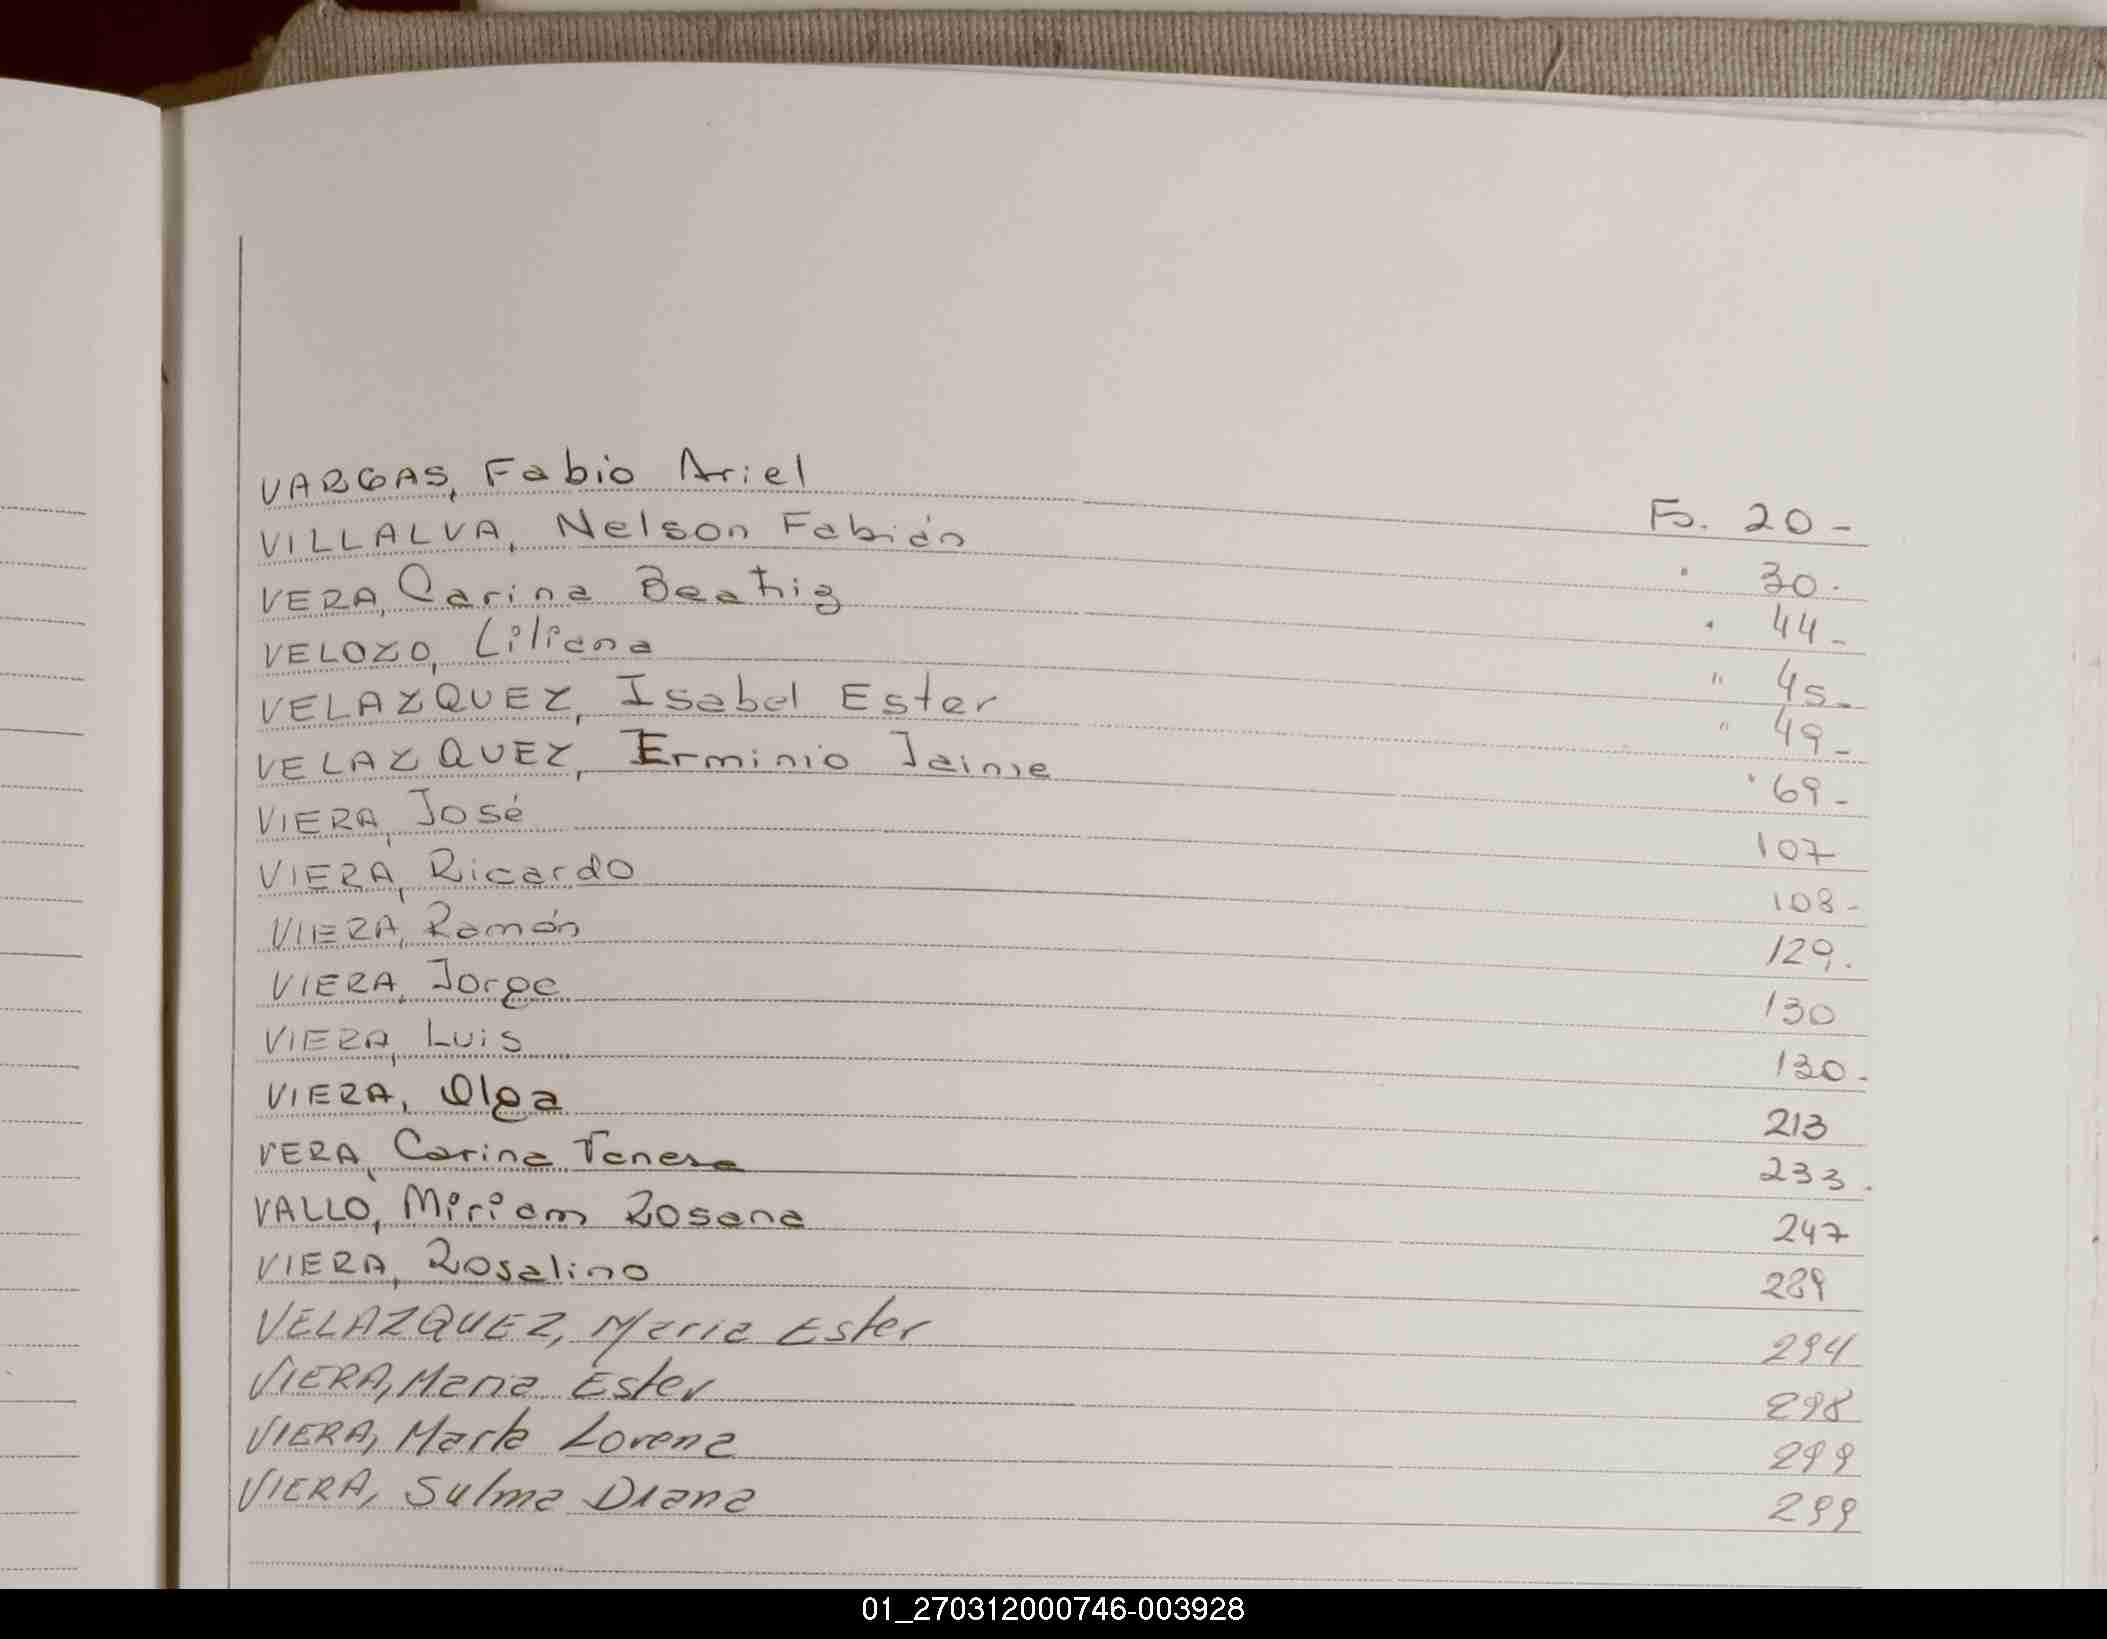 VARGAS, Fabio Ariel Fo. 20 -
VILLALVA, Nelson Fabián " 30.
VERA, Carina Beatriz " 44 -
VELOZO, Liliana " 45 -
VELAZQUEZ, Isabel Ester " 49 -
VELAZQUEZ, Erminio Jaime " 69 -
VIERA, José 107
VIERA, Ricardo 108 -
VIERA, Ramón 129.
VIERA, Jorge 130
VIERA, Luis 130 -
VIERA, Olga 213
VERA, Carina Vanesa 233.
VALLO, Miriam Rosana 247
VIERA, Rosalino 289
VELAZQUEZ, Maria Ester 294
VIERA, Maria Ester 298
VIERA, Marta Lorena 299
VIERA, Sulma Diana 299
01_270312000746-003928